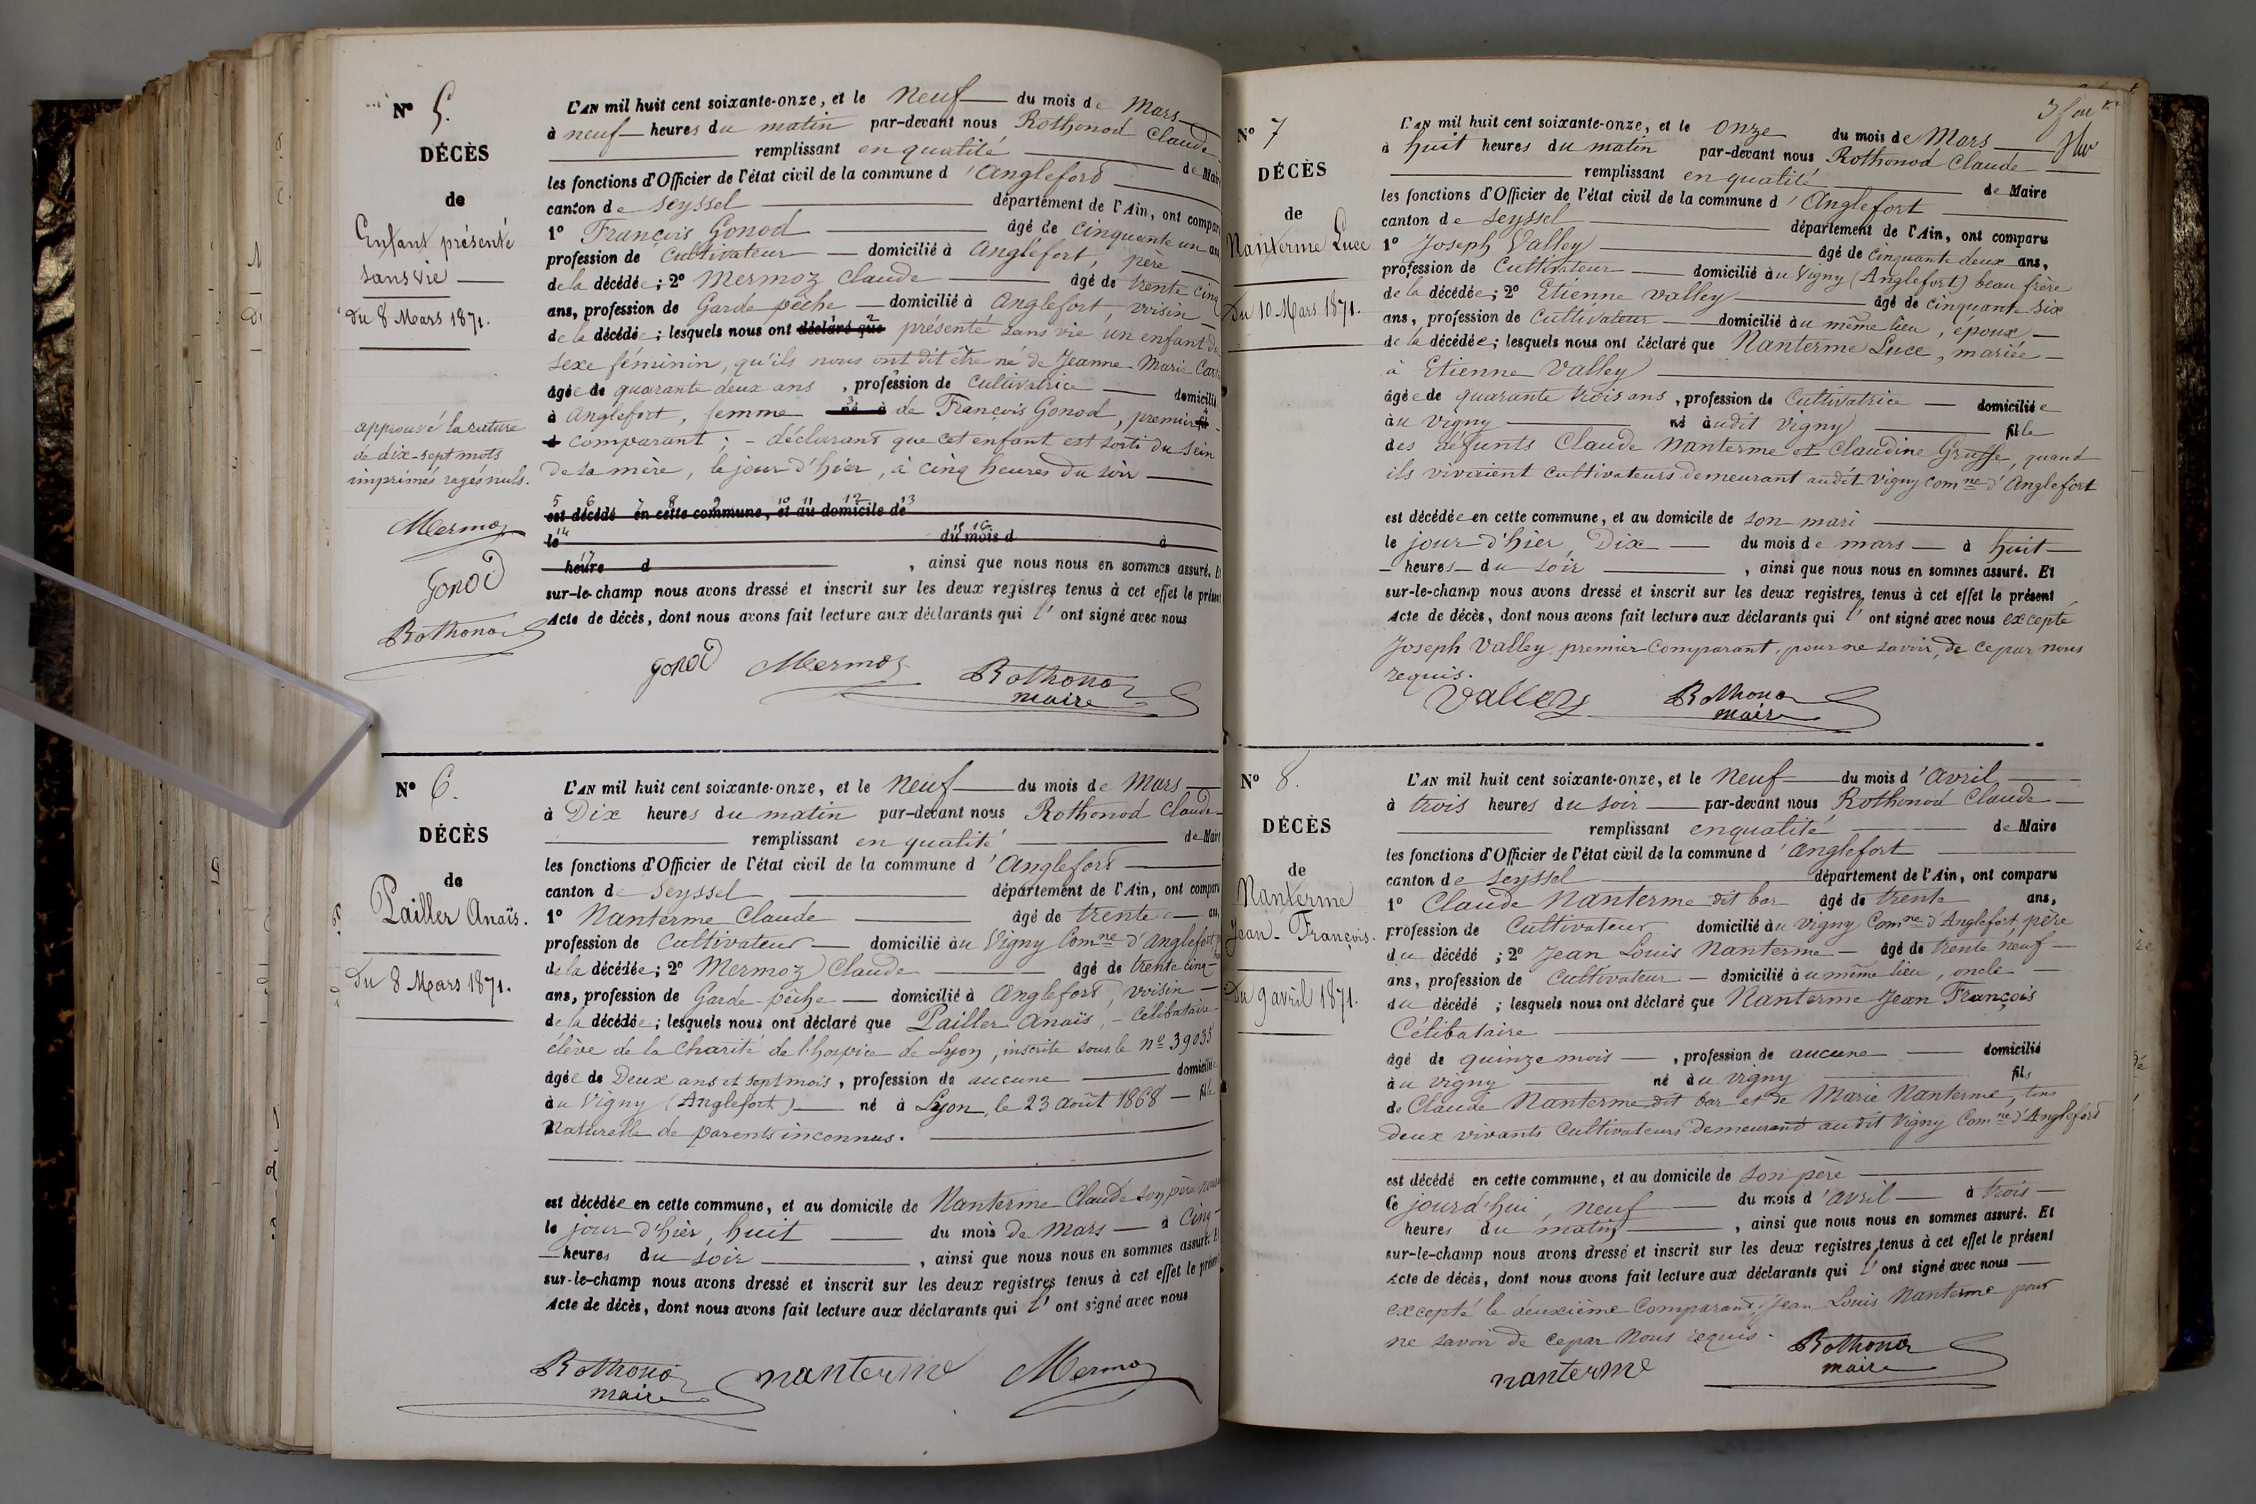 N° 5.
DÉCÈS
de
Enfant présenté
sans vie
du 8 Mars 1871.
approuvé la rature
de dix-sept mots
imprimés rayés nuls.
Mermoz
Gonod
Rothonod
L'AN mil huit cent soixante-onze, et le neuf du mois de Mars
à neuf heures du matin par-devant nous Rothonod Claude
remplissant en qualité de Maire
les fonctions d'Officier de l'état civil de la commune d'Anglefort
canton de Seyssel département de l'Ain, ont comparu
1° François Gonod âgé de cinquante un ans
profession de Cultivateur domicilié à Anglefort, père
de la décédée; 2° Mermoz Claude âgé de trente cinq
ans, profession de Garde pêche domicilié à Anglefort, voisin
de la décédée; lesquels nous ont déclaré que 2 présenté sans vie un enfant du
sexe féminin, qu'ils nous ont dit être né de Jeanne Marie
âgée de quarante deux ans, profession de Cultivatrice domiciliée
à Anglefort, femme né à 3 de François Gonod, premier fil
comparant; - déclarant que cet enfant est sorti du sein
de sa mère, le jour d'hier, à cinq heures du soir
5 6 7 8 9 10 11 12 13
est décédé en cette commune, et au domicile de
le 14 du mois d 15 16 à
heure 17 d , ainsi que nous nous en sommes assuré. Et
sur-le-champ nous avons dressé et inscrit sur les deux registres tenus à cet effet le présent
Acte de décès, dont nous avons fait lecture aux déclarants qui l'ont signé avec nous
Gonod Mermoz Rothonod
maire
N° 6.
DÉCÈS
de
Pailler Anaïs.
Du 8 Mars 1871.
L'AN mil huit cent soixante-onze, et le neuf du mois de Mars
à Dix heures du matin par-devant nous Rothonod Claude
remplissant en qualité de Maire
les fonctions d'Officier de l'état civil de la commune d'Anglefort
canton de Seyssel département de l'Ain, ont comparu
1° Nanterme Claude âgé de trente ans,
profession de Cultivateur domicilié au Vigny Comne d'Anglefort
de la décédée; 2° Mermoz Claude âgé de trente cinq
ans, profession de Garde-pêche domicilié à Anglefort, voisin
de la décédée; lesquels nous ont déclaré que Pailler Anaïs, - Célibataire
élève de la Charité de l'hospice de Lyon, inscrite sous le n° 39035
âgée de Deux ans et sept mois, profession de aucune domiciliée
au Vigny (Anglefort) né à Lyon, le 23 août 1868 fille
Naturelle de parents inconnus.
est décédée en cette commune, et au domicile de Nanterme Claude son père
le jour d'hier, huit du mois de Mars à Cinq
heures du soir , ainsi que nous nous en sommes assuré. Et
sur-le-champ nous avons dressé et inscrit sur les deux registres tenus à cet effet le présent
Acte de décès, dont nous avons fait lecture aux déclarants qui l'ont signé avec nous
Rothonod nanterme Mermoz
maire
N° 7
DÉCÈS
de
Nanterme Luce
Du 10 Mars 1871.
L'AN mil huit cent soixante-onze, et le onze du mois de Mars
à huit heures du matin par-devant nous Rothonod Claude
remplissant en qualité de Maire
les fonctions d'Officier de l'état civil de la commune d'Anglefort
canton de Seyssel département de l'Ain, ont comparu
1° Joseph Valley âgé de Cinquante deux ans,
profession de Cultivateur domicilié au Vigny (Anglefort) beau frère
de la décédée; 2° Etienne Valley âgé de cinquante six
ans, profession de Cultivateur domicilié au même lieu, époux
de la décédée; lesquels nous ont déclaré que Nanterme Luce, mariée
à Etienne Valley
âgée de quarante trois ans, profession de Cultivatrice domiciliée
au Vigny né audit Vigny fille
des défunts Claude Nanterme et Claudine Gruffe, quand
ils vivaient cultivateurs demeurant audit Vigny Comne d'Anglefort
est décédée en cette commune, et au domicile de son mari
le jour d'hier, Dix du mois de mars à huit
heures du soir , ainsi que nous nous en sommes assuré. Et
sur-le-champ nous avons dressé et inscrit sur les deux registres tenus à cet effet le présent
Acte de décès, dont nous avons fait lecture aux déclarants qui l'ont signé avec nous excepté
Joseph Valley premier comparant, pour ne savoir, de ce par nous
requis.
Valley Rothonod
maire
N° 8.
DÉCÈS
de
Nanterme
Jean-François.
Du 9 avril 1871.
L'AN mil huit cent soixante-onze, et le neuf du mois d'avril
à trois heures du soir par-devant nous Rothonod Claude
remplissant en qualité de Maire
les fonctions d'Officier de l'état civil de la commune d'Anglefort
canton de Seyssel département de l'Ain, ont comparu
1° Claude Nanterme dit bar âgé de trente ans,
profession de Cultivateur domicilié au Vigny Comne d'Anglefort père
du décédé; 2° Jean Louis Nanterme âgé de trente neuf
ans, profession de Cultivateur domicilié au même lieu, oncle
du décédé; lesquels nous ont déclaré que Nanterme Jean François
Célibataire
âgé de quinze mois, profession de aucune domicilié
au Vigny né au Vigny fils
de Claude Nanterme dit bar et de Marie Nanterme, tous
deux vivants Cultivateurs demeurant audit Vigny Comne d'Anglefort
est décédé en cette commune, et au domicile de son père
Ce jourd'hui, neuf du mois d'avril à trois
heures du matin , ainsi que nous nous en sommes assuré. Et
sur-le-champ nous avons dressé et inscrit sur les deux registres tenus à cet effet le présent
Acte de décès, dont nous avons fait lecture aux déclarants qui l'ont signé avec nous
excepté le deuxième Comparant, Jean Louis Nanterme pour
ne savoir de ce par Nous requis.
nanterme Rothonod
maire